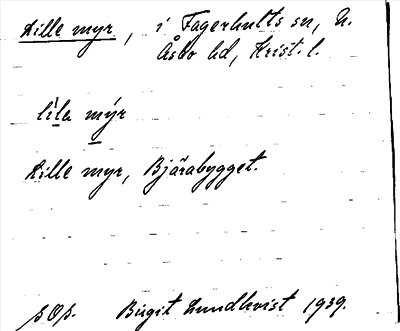 Lille myr, i Fagerhults sn, N.
Åsbo hd, Krist. l.
líla mýr
Lille myr, Bjärabygget.
Birgit Lundkvist 1939.